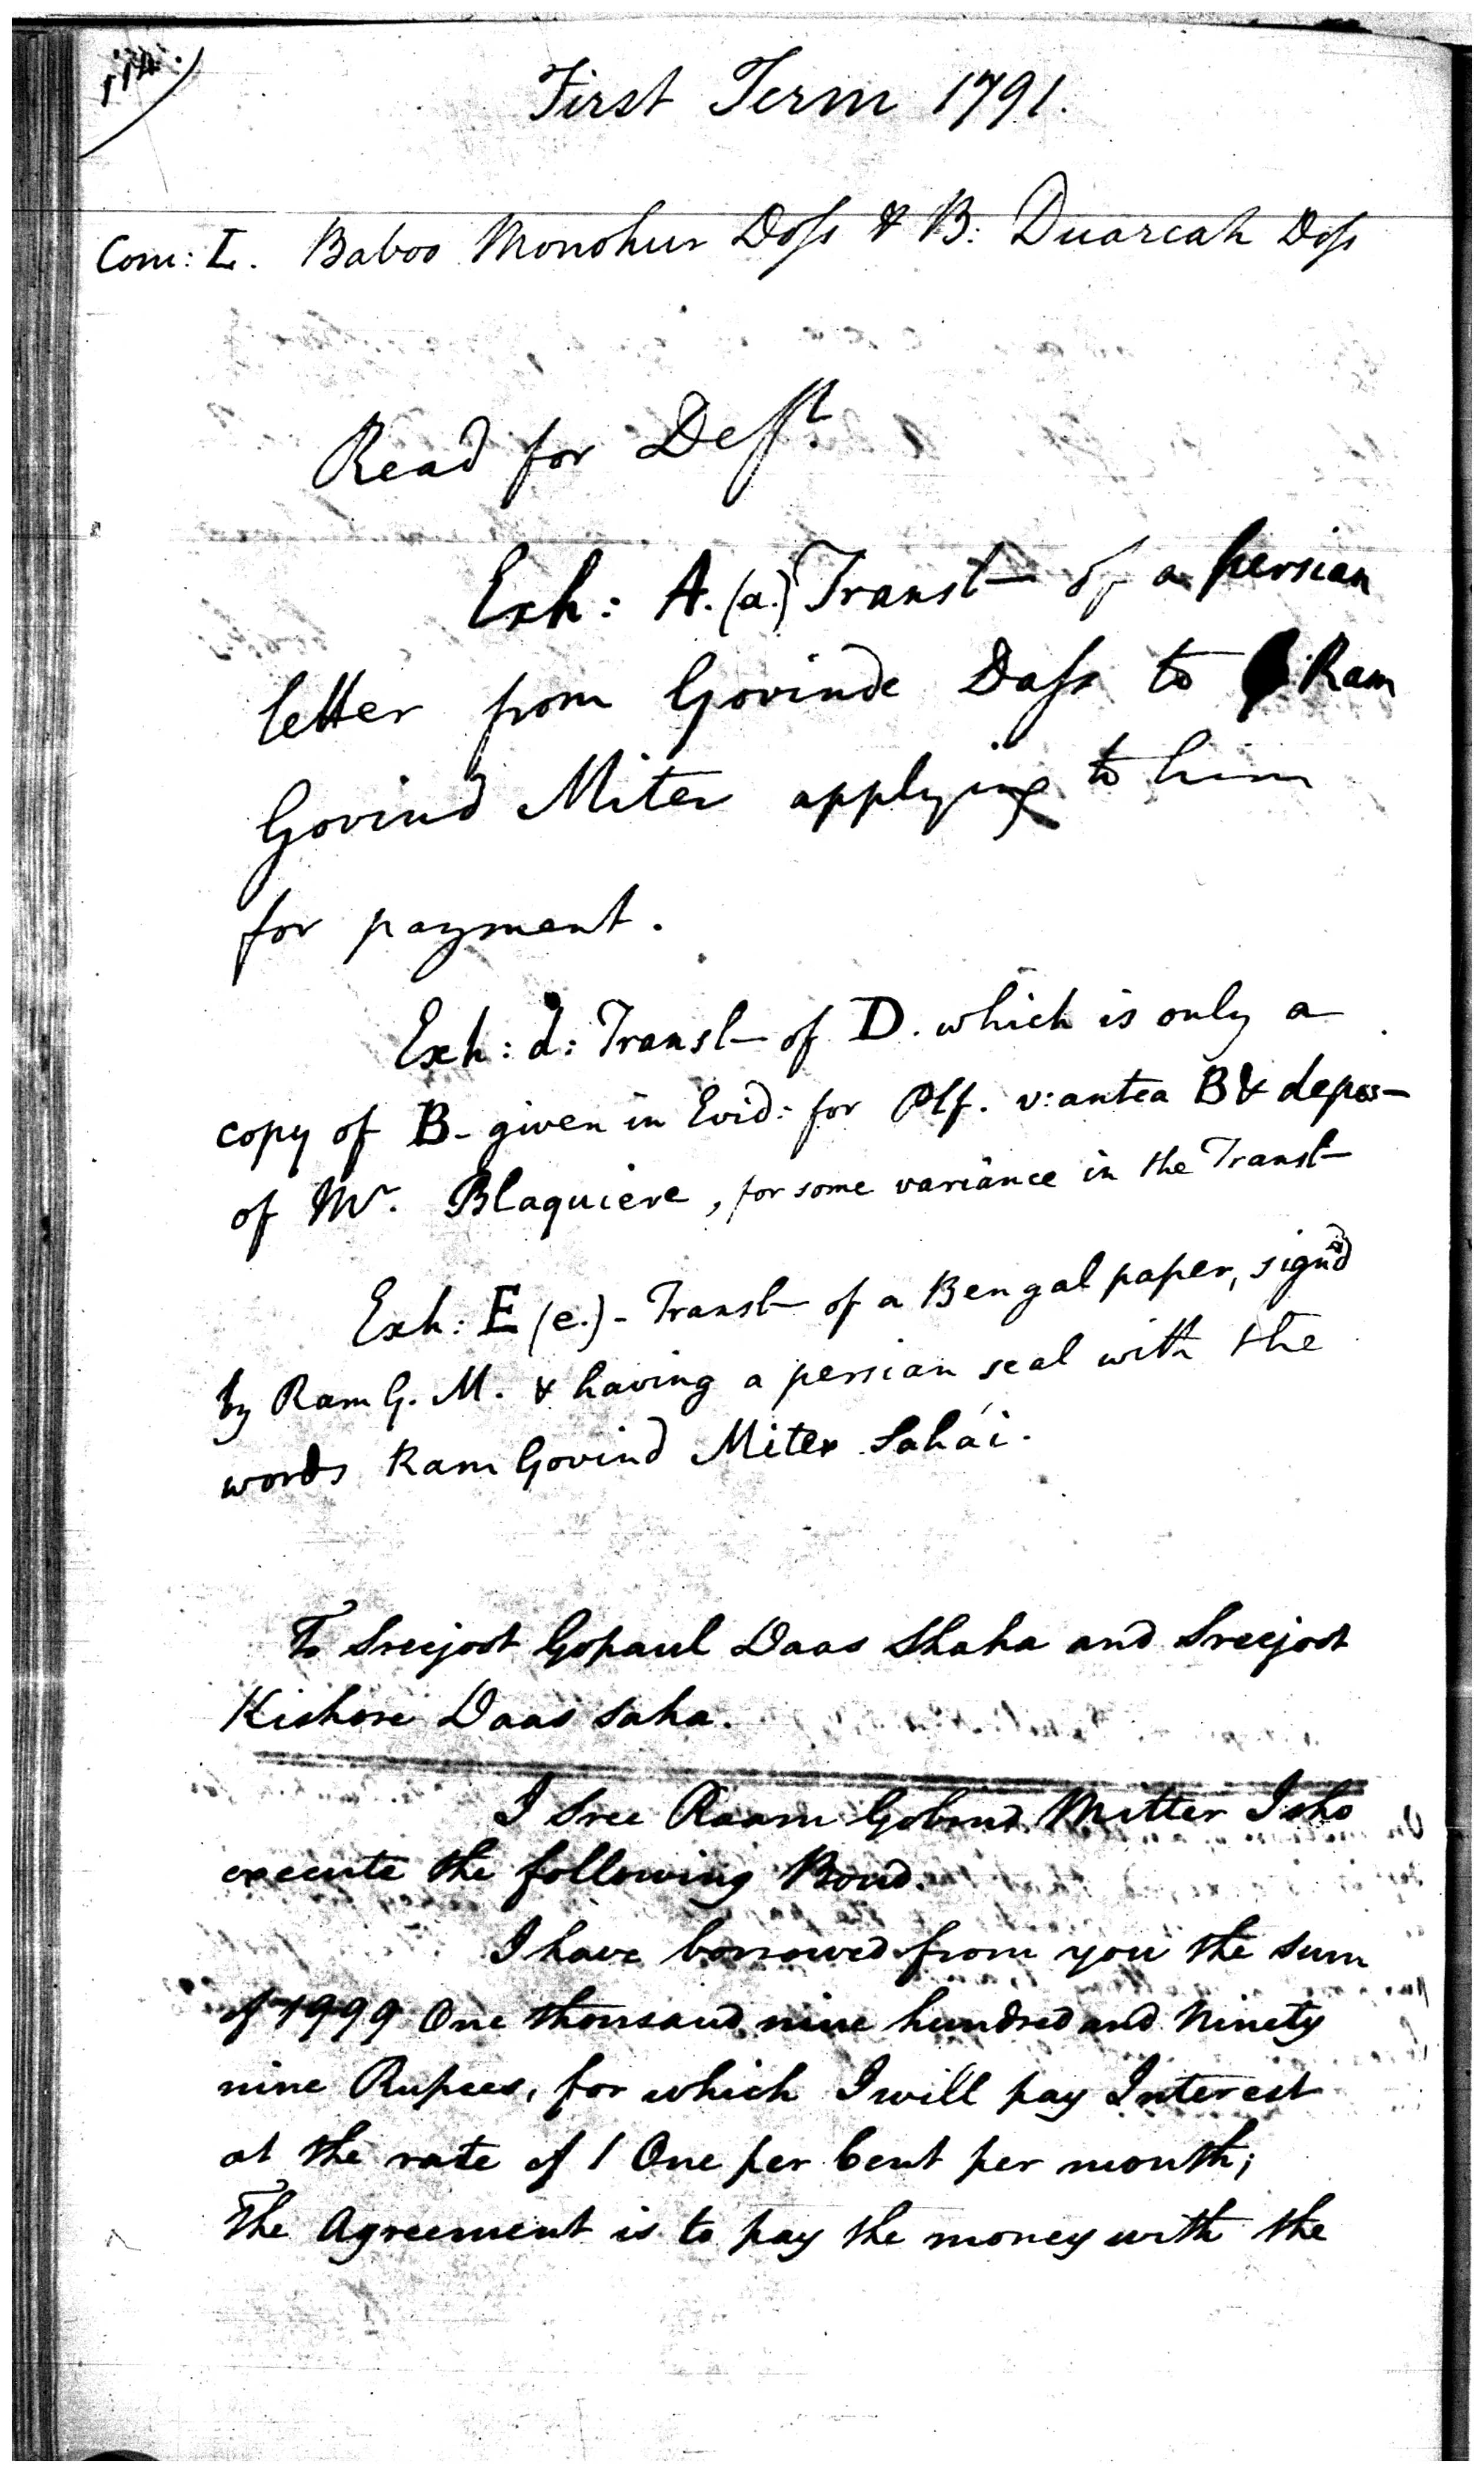 114.
First Term 1791.
Com: L. Baboo Monohur Doss & B: Duarcah Doss
Read for Deft.
Exh: A. (a.) Transl— of a persian
letter from Govinde Dass to Ram
Govind Miter applying to him
for payment.
Exh: d: Transl— of D. which is only a
copy of B- given in Evid: for Plf. v: antea B & depos—
of Mr. Blaquiere, for some variance in the Transl—
Exh: E (e.) - Transl— of a Bengal paper, sign'd
by Ram G. M. & having a persian seal with the
words Ram Govind Miter Sahái.
To Sreejoot Gopaul Daas Shaha and Sreejoot
Kishore Daas Saha.
I Sree Raam Gobind Mitter I sho
execute the following Bond.
I have borrowed from you the sum
of 1999 One thousand nine hundred and Ninety
nine Rupees, for which I will pay Interest
at the rate of 1 One per Cent per month;
The Agreement is to pay the money with the